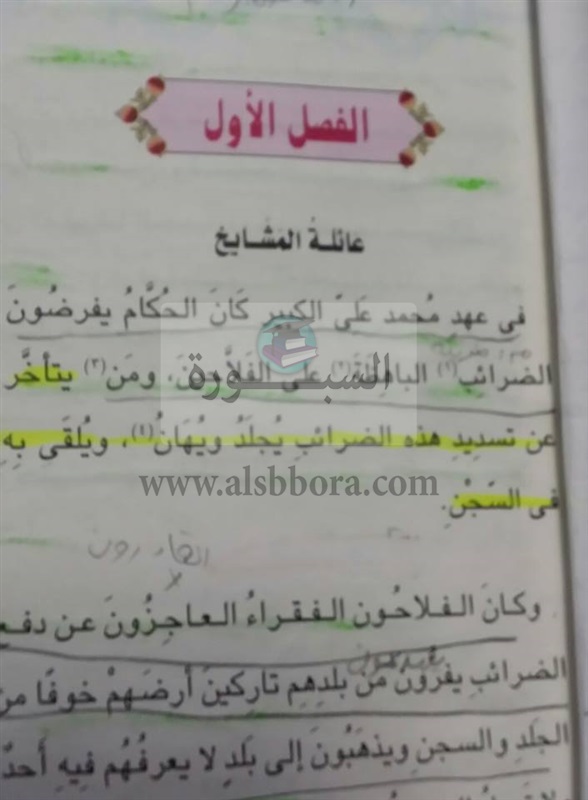 الفصل الأول
عائلة المشايخ
فى عهد مُحمد علىّ الكبير كَانَ الحُكَّامُ يفرضُونَ
الضرائبَ(١) الباهِظَةَ(٢) على الفَلَّاحِينَ، ومَن(٣) يتأخَّر
عن تسديدِ هذه الضرائبِ يُجلَدُ ويُهَانُ(٤)، ويُلقَى بِهِ
فى السَجْنِ.
السبورة
www.alsbbora.com
وكانَ الفلاحُون الفقراءُ العاجِزُونَ عن دفع
الضرائبِ يفرُّونَ مِنْ بلدِهِم تارِكينَ أرضَهمْ خوفًا من
الجلدِ والسجنِ ويذهَبُونَ إلى بلَدٍ لا يعرفُهُم فيهِ أحدٌ